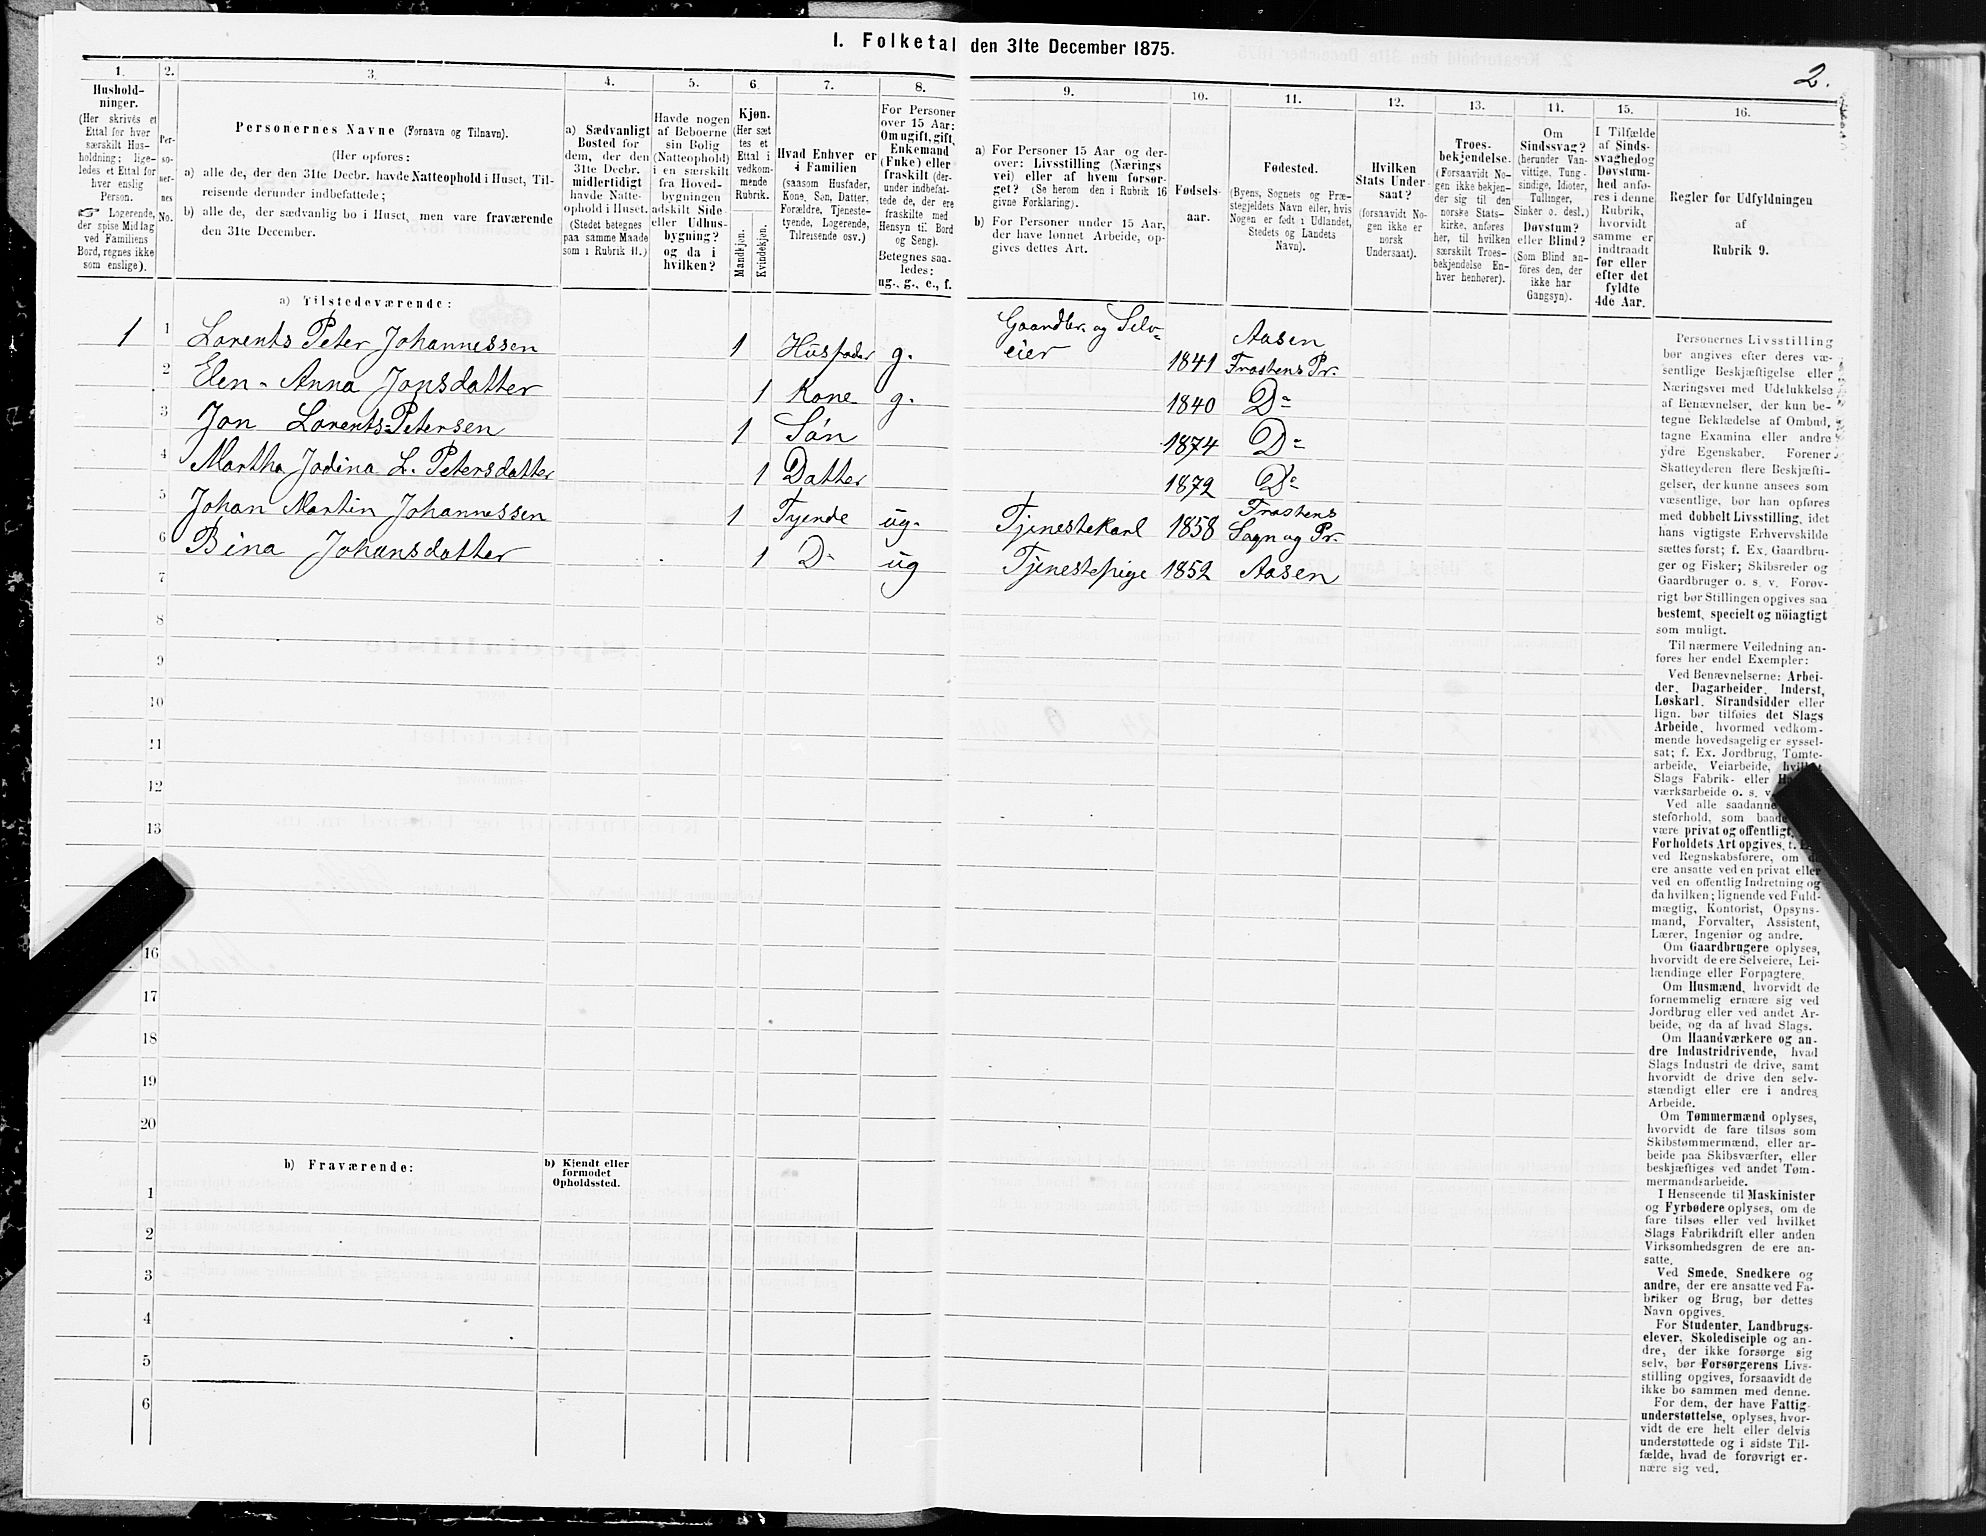 I. Folketal den 31te December 1875.
2.
1.
Hushold-
ninger.
(Her skrives et
Ettal for hver
særskilt Hus-
holdning; lige-
ledes et Ettal for
hver enslig
Person.
☞ Logerende,
der spise Middag
ved Familiens
Bord, regnes ikke
som enslige).
2.
Per-
so-
ner-
nes
No.
3.
Personernes Navne (Fornavn og Tilnavn).
(Her opføres:
a) alle de, der den 31te Decbr. havde Natteophold i Huset, Til-
reisende derunder indbefattede;
b) alle de, der sædvanlig bo i Huset, men vare fraværende
den 31te December.
4.
a) Sædvanligt
Bosted for
dem, der den
31te Decbr.
midlertidigt
havde Natte-
ophold i Huset.
(Stedet betegnes
paa samme Maade
som i Rubrik 11.)
5.
Havde nogen
af Beboerne
sin Bolig
(Natteophold)
i en særskilt
fra Hoved-
bygningen
adskilt Side-
eller Udhus-
bygning?
og da i
hvilken?
6.
Kjøn.
(Her sæt-
tes et
Ettal i
vedkom-
mende
Rubrik.
Mandkjøn.
Kvindekjøn.
7.
Hvad Enhver er
i Familien
(saasom Husfader,
Kone, Søn, Datter,
Forældre, Tjeneste-
tyende, Logerende,
Tilreisende osv.)
8.
For Personer
over 15 Aar:
Om ugift, gift,
Enkemand
(Enke) eller
fraskilt (der-
under indbefat-
tede de, der ere
fraskilte med
Hensyn til Bord
og Seng).
Betegnes saa-
ledes:
ug., g., e., f.
9.
a) For Personer 15 Aar og der-
over: Livsstilling (Nærings
vei) eller af hvem forsør-
get? (Se herom den i Rubrik 16
givne Forklaring).
b) For Personer under 15 Aar,
der have lønnet Arbeide, op-
gives dettes Art.
10.
Fødsels-
aar.
11.
Fødested.
(Byens, Sognets og Præ-
stegjeldets Navn eller, hvis
Nogen er født i Udlandet,
Stedets og Landets
Navn).
12.
Hvilken
Stats Under-
saat?
(forsaavidt No-
gen ikke er
norsk
Undersaat).
13.
Troes-
bekjendelse.
(Forsaavidt No-
gen ikke bekjen-
der sig til den
norske Stats-
kirke, anføres
her, til hvilken
særskilt Troes-
bekjendelse En-
hver henhører).
14.
Om
Sindssvag?
(herunder Van-
vittige, Tung-
sindige, Idioter,
Tullinger,
Sinker o. desl.)
Døvstum?
eller Blind?
(Som Blind an-
føres den, der
ikke har
Gangsyn).
15.
I Tilfælde
af Sinds-
svaghed og
Døvstum-
hed anfø-
res i denne
Rubrik,
hvorvidt
samme er
indtraadt
før eller
efter det
fyldte
4de Aar.
16.
Regler for Udfyldningen
af
Rubrik 9.
a) Tilstedeværende:
1 1 Lorents Peter Johannessen 1 Husfader g. Gaardbr. og Selv-
eier 1841 Aasen
Frostens Pr.
2 Elen-Anna Jonsdatter 1 Kone g. 1840 Do
3 Jon Lorents-Petersen 1 Søn 1874 Do
4 Martha Jodina L. Petersdatter 1 Datter 1872 Do
5 Johan Martin Johannessen 1 Tyende ug. Tjenestekarl 1858 Frostens
Sogn og Pr.
6 Bina Johansdatter 1 D- ug Tjenestepige 1852 Aasen
7
8
9
10
11
12
13
16
17
18
19
20
b) Fraværende:
b) Kjendt eller
formodet
Opholdssted.
1
2
3
4
5
6
Personernes Livsstilling
bør angives efter deres væ-
sentlige Beskjæftigelse eller
Næringsvei med Udelukkelse
af Benævnelser, der kun be-
tegne Beklædelse af Ombud,
tagne Examina eller andre
ydre Egenskaber. Forener
Skatteyderen flere Beskjæfti-
gelser, der kunne ansees som
væsentlige, bør han opføres
med dobbelt Livsstilling, idet
hans vigtigste Erhvervskilde
sættes først; f. Ex. Gaardbru-
ger og Fisker; Skibsreder og
Gaardbruger o. s. v. Forøv-
rigt bør Stillingen opgives saa
bestemt, specielt og nöiagtigt
som muligt.
Til nærmere Veiledning an-
føres her endel Exempler:
Ved Benævnelserne: Arbei-
der, Dagarbeider, Inderst,
Løskarl, Strandsidder eller
lign. bør tilføies det Slags
Arbeide, hvormed vedkom-
mende hovedsagelig er syssel-
sat; f. Ex. Jordbrug, Tomte-
arbeide, Veiarbeide, hvilket
Slags Fabrik- eller
værksarbeide o. s. v.
Ved alle saadanne
steforhold, som baade
være privat og offentligt,
Forholdets Art opgives, f.
ved Regnskabsførere, om de
ere ansatte ved en privat eller
ved en offentlig Indretning og
da hvilken; lignende ved Fuld-
mægtig, Kontorist, Opsyns-
mand, Forvalter, Assistent,
Lærer, Ingeniør og andre.
Om Gaardbrugere oplyses,
hvorvidt de ere Selveiere, Lei-
lændinge eller Forpagtere.
Om Husmænd, hvorvidt de
fornemmelig ernære sig ved
Jordbrug eller ved andet Ar-
beide, og da af hvad Slags.
Om Haandværkere og an-
dre Industridrivende, hvad
Slags Industri de drive, samt
hvorvidt de drive den selv-
stændigt eller ere i andres
Arbeide.
Om Tømmermænd oplyses,
hvorvidt de fare tilsøs som
Skibstømmermænd, eller ar-
beide paa Skibsværfter, eller
beskjæftiges ved andet Tøm-
mermandsarbeide.
I Henseende til Maskinister
og Fyrbødere oplyses, om de
fare tilsøs eller ved hvilket
Slags Fabrikdrift eller anden
Virksomhedsgren de ere an-
satte.
Ved Smede, Snedkere og
andre, der ere ansatte ved Fa-
briker og Brug, bør dettes
Navn opgives.
For Studenter, Landbrugs-
elever, Skoledisciple og an-
dre, der ikke forsørge sig
selv, bør Forsørgerens Livs-
stilling opgives, forsaavidt de
ikke bo sammen med denne.
For dem, der have Fattig-
understøttelse, oplyses, hvor-
vidt de ere helt eller delvis
understøttede og i sidste Til-
fælde, hvad de forøvrigt er-
nære sig ved.